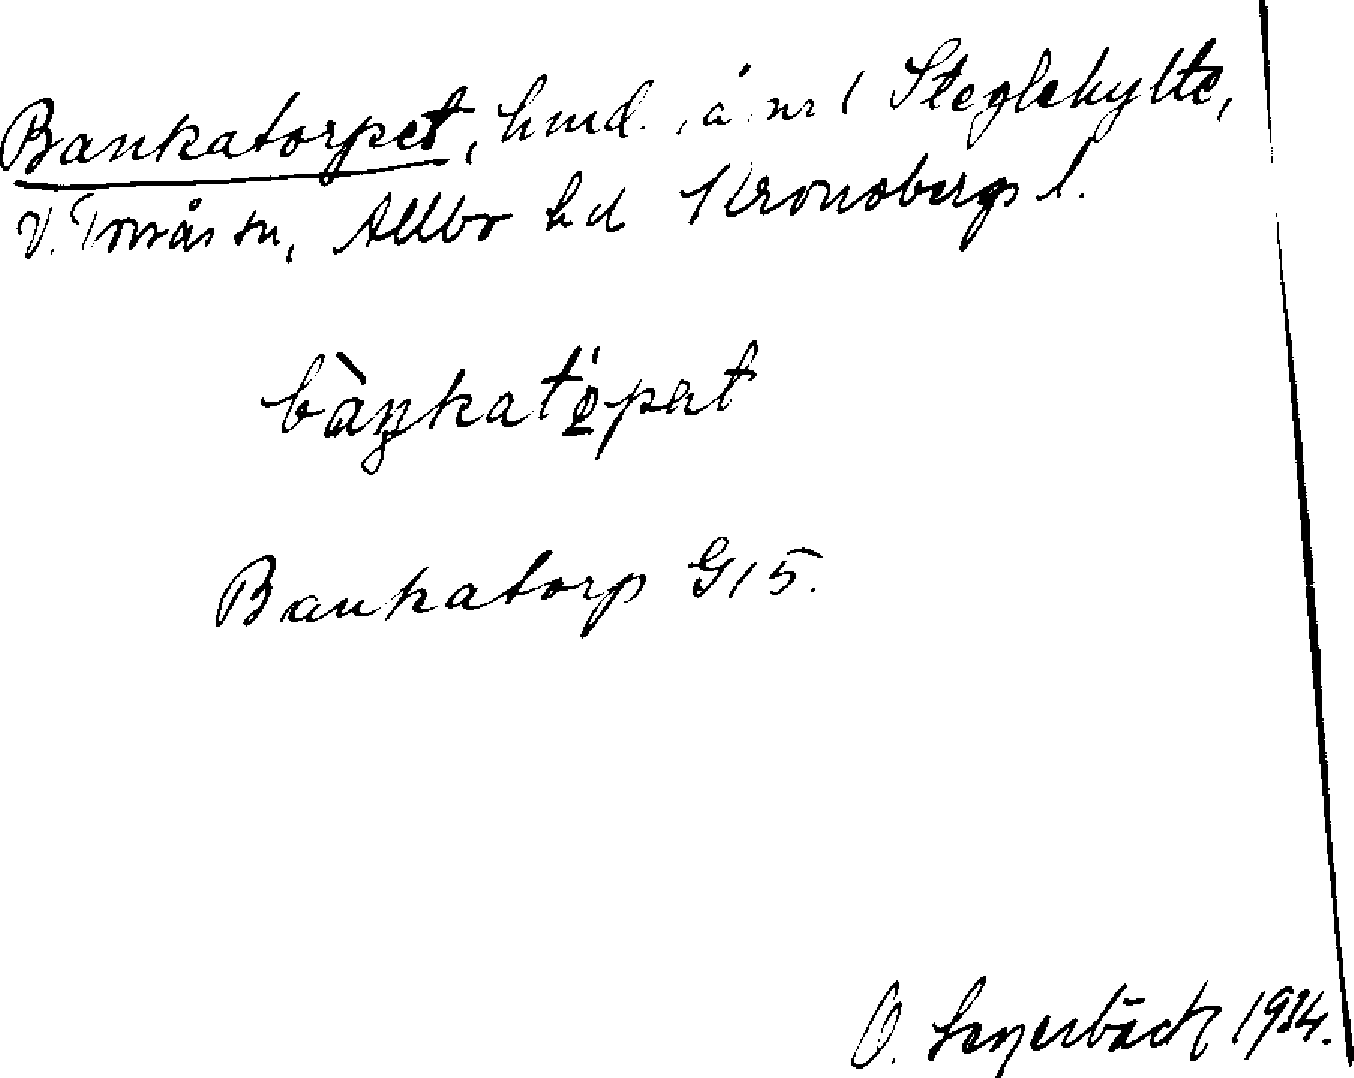 Bankatorpet, hmd. å nr 1 Steglehylte,
V. Torsås sn, Allbo hd Kronobergs l.
bàŋkatǫ̈pət
Bankatorp G 15.
O. 1934.